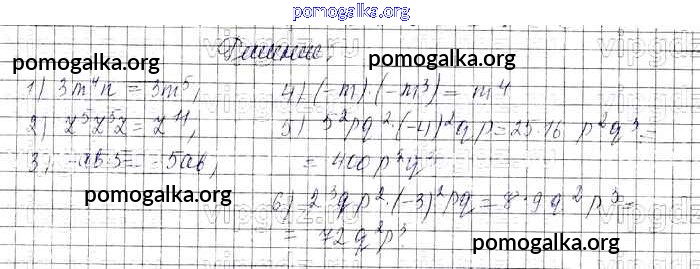 pomogalka.org
Решение.
pomogalka.org
pomogalka.org
1) 3m⁴n = 3m⁵,
4) (-m)·(-m³) = m⁴
2) z⁵z⁵z = z¹¹,
5) 5²pq²·(-4)²qp = 25·16 p²q³ =
3) -ab·5 = -5ab,
= 400p²q³
pomogalka.org
6) 2³qp²·(-3)²pq = 8·9q²p³ =
= 72q²p³
pomogalka.org